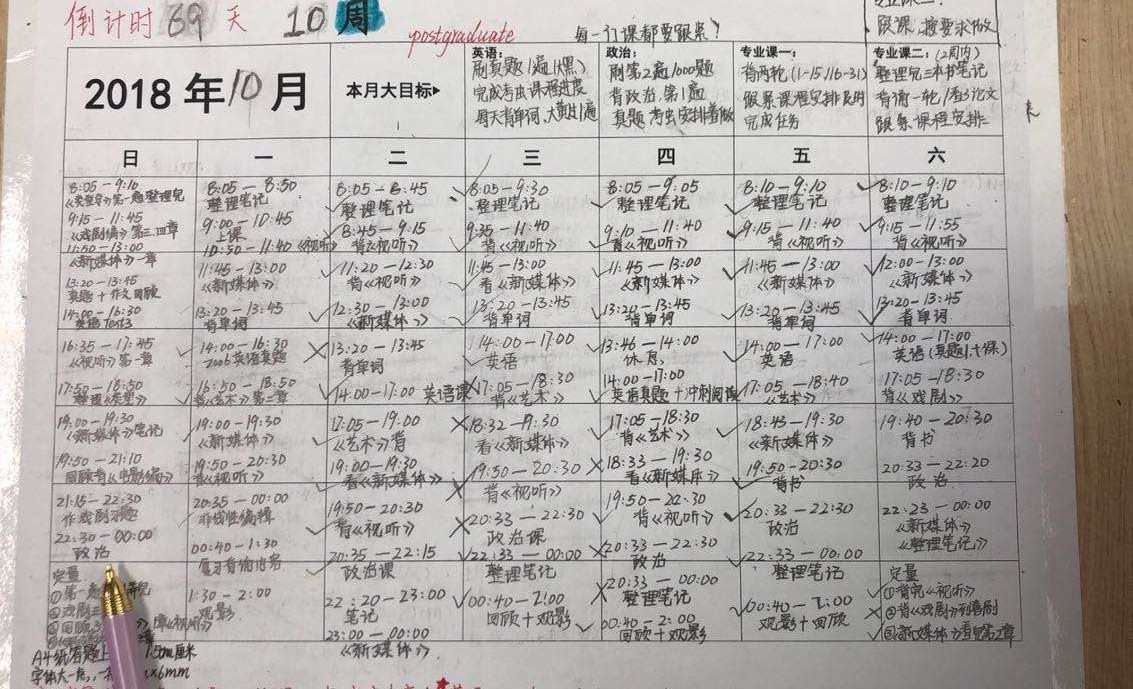 倒计时 69 天 10 周
postgraduate
每一门课都要跟紧！
跟课，按要求做
2018 年 10 月
本月大目标▶
英语：
刷真题1遍(黑)
完成考虫课程进度
周天背单词、大黄1遍
政治：
刷第2遍1000题
背政治，第1遍
真题，考虫安排着做
专业课一：
背两轮(1-15/16-31)
跟紧课程安排及时
完成任务
专业课二：(2周内)
整理完三本书笔记
背诵一轮/看3论文
跟紧课程安排
日 一 二 三 四 五 六
8:05-9:10
第一题整理完
9:15-11:45
《戏剧编》第三.四章
11:50-13:00
《新媒体》一章
13:20-13:45
真题+作文回顾
14:00-16:30
英语Text3
16:35-17:45
《视听》第一章
17:50-18:50
19:00-19:30
《新媒体》笔记
19:50-21:10
21:15-22:30
作戏剧习题
22:30-00:00
政治
定量
8:05-8:50
整理笔记
9:00-10:45
上课
10:50-11:40《视听》
11:45-13:00
《新媒体》
13:20-13:45
背单词
14:00-16:30
2006英语真题
16:50-18:50
背《艺术》第二章
19:00-19:30
《新媒体》
19:50-20:30
背《视听》
20:35-00:00
非线性编辑
00:40-1:30
复习背诵内容
1:30-2:00
观影
8:05-8:45
整理笔记
8:45-9:15
背《视听》
11:20-12:30
背《视听》
12:30-13:00
《新媒体》
13:20-13:45
背单词
14:00-17:00 英语课
17:05-19:00
《艺术》背
19:00-19:30
看《新媒体》
19:50-20:30
背《视听》
20:35-22:15
政治课
22:20-23:00
笔记
23:00-00:00
《新媒体》
8:05-9:30
整理笔记
9:35-11:40
背《视听》
11:45-13:00
看《新媒体》
13:20-13:45
背单词
14:00-17:00
英语
17:05-18:30
背《艺术》
18:32-19:30
看《新媒体》
19:50-20:30
背《视听》
20:33-22:30
政治课
22:33-00:00
整理笔记
00:40-2:00
回顾+观影
8:05-9:05
整理笔记
9:10-11:40
背《视听》
11:45-13:00
《新媒体》
13:20-13:45
背单词
13:46-14:00
休息
14:00-17:00
英语真题+冲刺阅读
17:05-18:30
背《艺术》
18:33-19:30
看《新媒体》
19:50-20:30
背《视听》
20:33-22:30
政治
20:33-00:00
整理笔记
00:40-2:00
回顾+观影
8:10-9:10
整理笔记
9:15-11:40
背《视听》
11:45-13:00
《新媒体》
13:20-13:45
背单词
14:00-17:00
英语
17:05-18:40
《艺术》
18:45-19:30
《新媒体》
19:50-20:30
背书
20:33-22:30
政治
22:33-00:00
整理笔记
00:40-2:00
观影+回顾
8:10-9:10
整理笔记
9:15-11:55
背《视听》
12:00-13:00
《新媒体》
13:20-13:45
背单词
14:00-17:00
英语(真题1,+课)
17:05-18:30
背《戏剧》
19:40-20:30
背书
20:33-22:20
政治
22:23-00:00
《新媒体》
《整理笔记》
定量
①背完《视听》
②背《戏剧》到喜剧
③《新媒体》看完第2章
A4纸答题上
字体大一点，